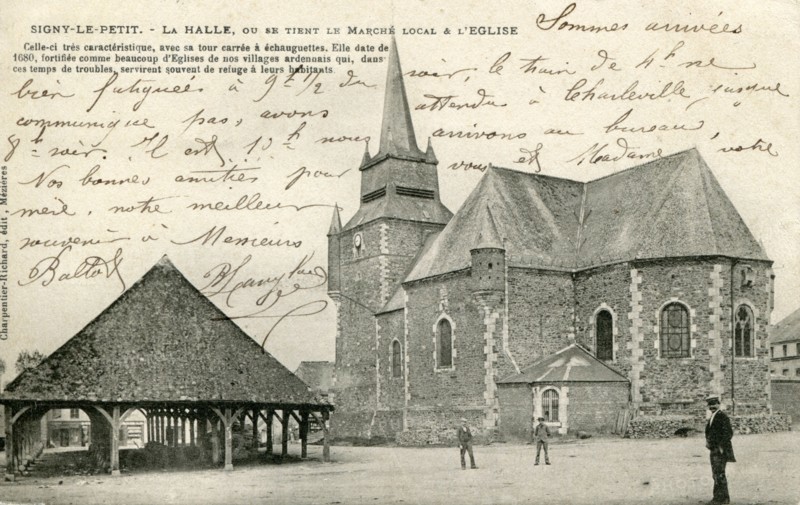 SIGNY-LE-PETIT. - LA HALLE, OU SE TIENT LE MARCHÉ LOCAL & L'EGLISE
Celle-ci très caractéristique, avec sa tour carrée à échauguettes. Elle date de
1680, fortifiée comme beaucoup d'Eglises de nos villages ardenais qui, dans
ces temps de troubles, servirent souvent de refuge à leurs habitants.
Sommes arrivées
bien fatiguées à 9h 1/2 du soir, le train de 4h ne
communique pas, avons attendu à Charleville jusque
8h soir. Il est 10h nous arrivons au bureau,
Nos bonnes amitiés pour vous et Madame votre
mère, notre meilleur
souvenir à Messieurs
Charpentier-Richard, édit, Mézières